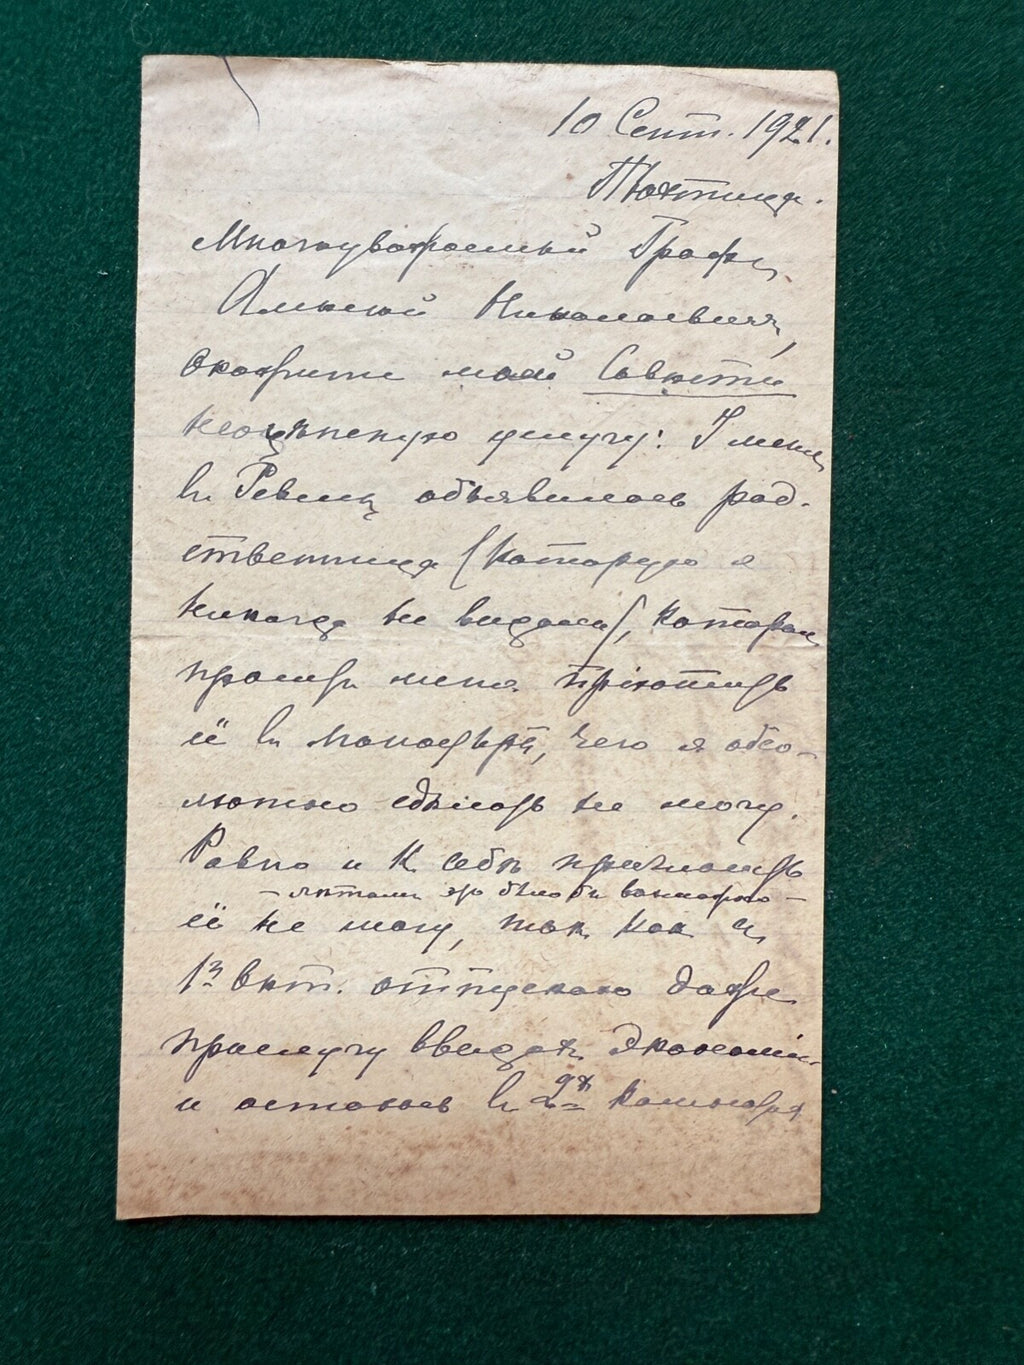 10 Сент. 1921.
Пюхтица.
Многоуважаемый Графъ
Алексей Николаевичъ,
окажите мне Советомъ
неоцѣненную услугу: У меня
въ Ревелѣ объявилась род-
ственница (которую я
никогда не видала), которая
проситъ меня пріютить
её въ монастырѣ, чего я абсо-
лютно сдѣлать не могу.
Равно и к себѣ пригласить
- лѣтомъ это было бы возможно -
её не могу, такъ какъ съ
1го Окт. отпускаю даже
прислугу ввидахъ экономіи
и остаюсь въ 2хъ комнатахъ